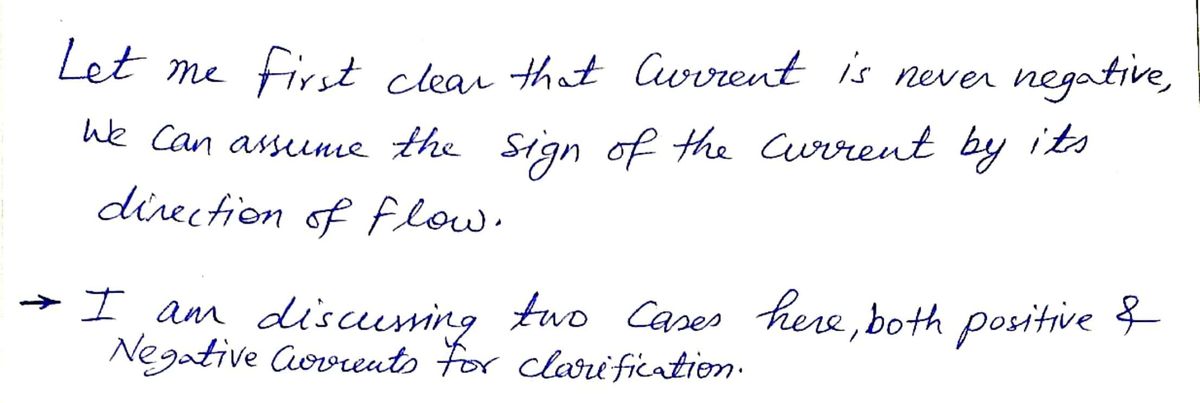 Let me first clear that Current is never negative,
We Can assume the sign of the Current by its
direction of flow.
→ I am discussing two Cases here, both positive &
Negative Currents for clarification.